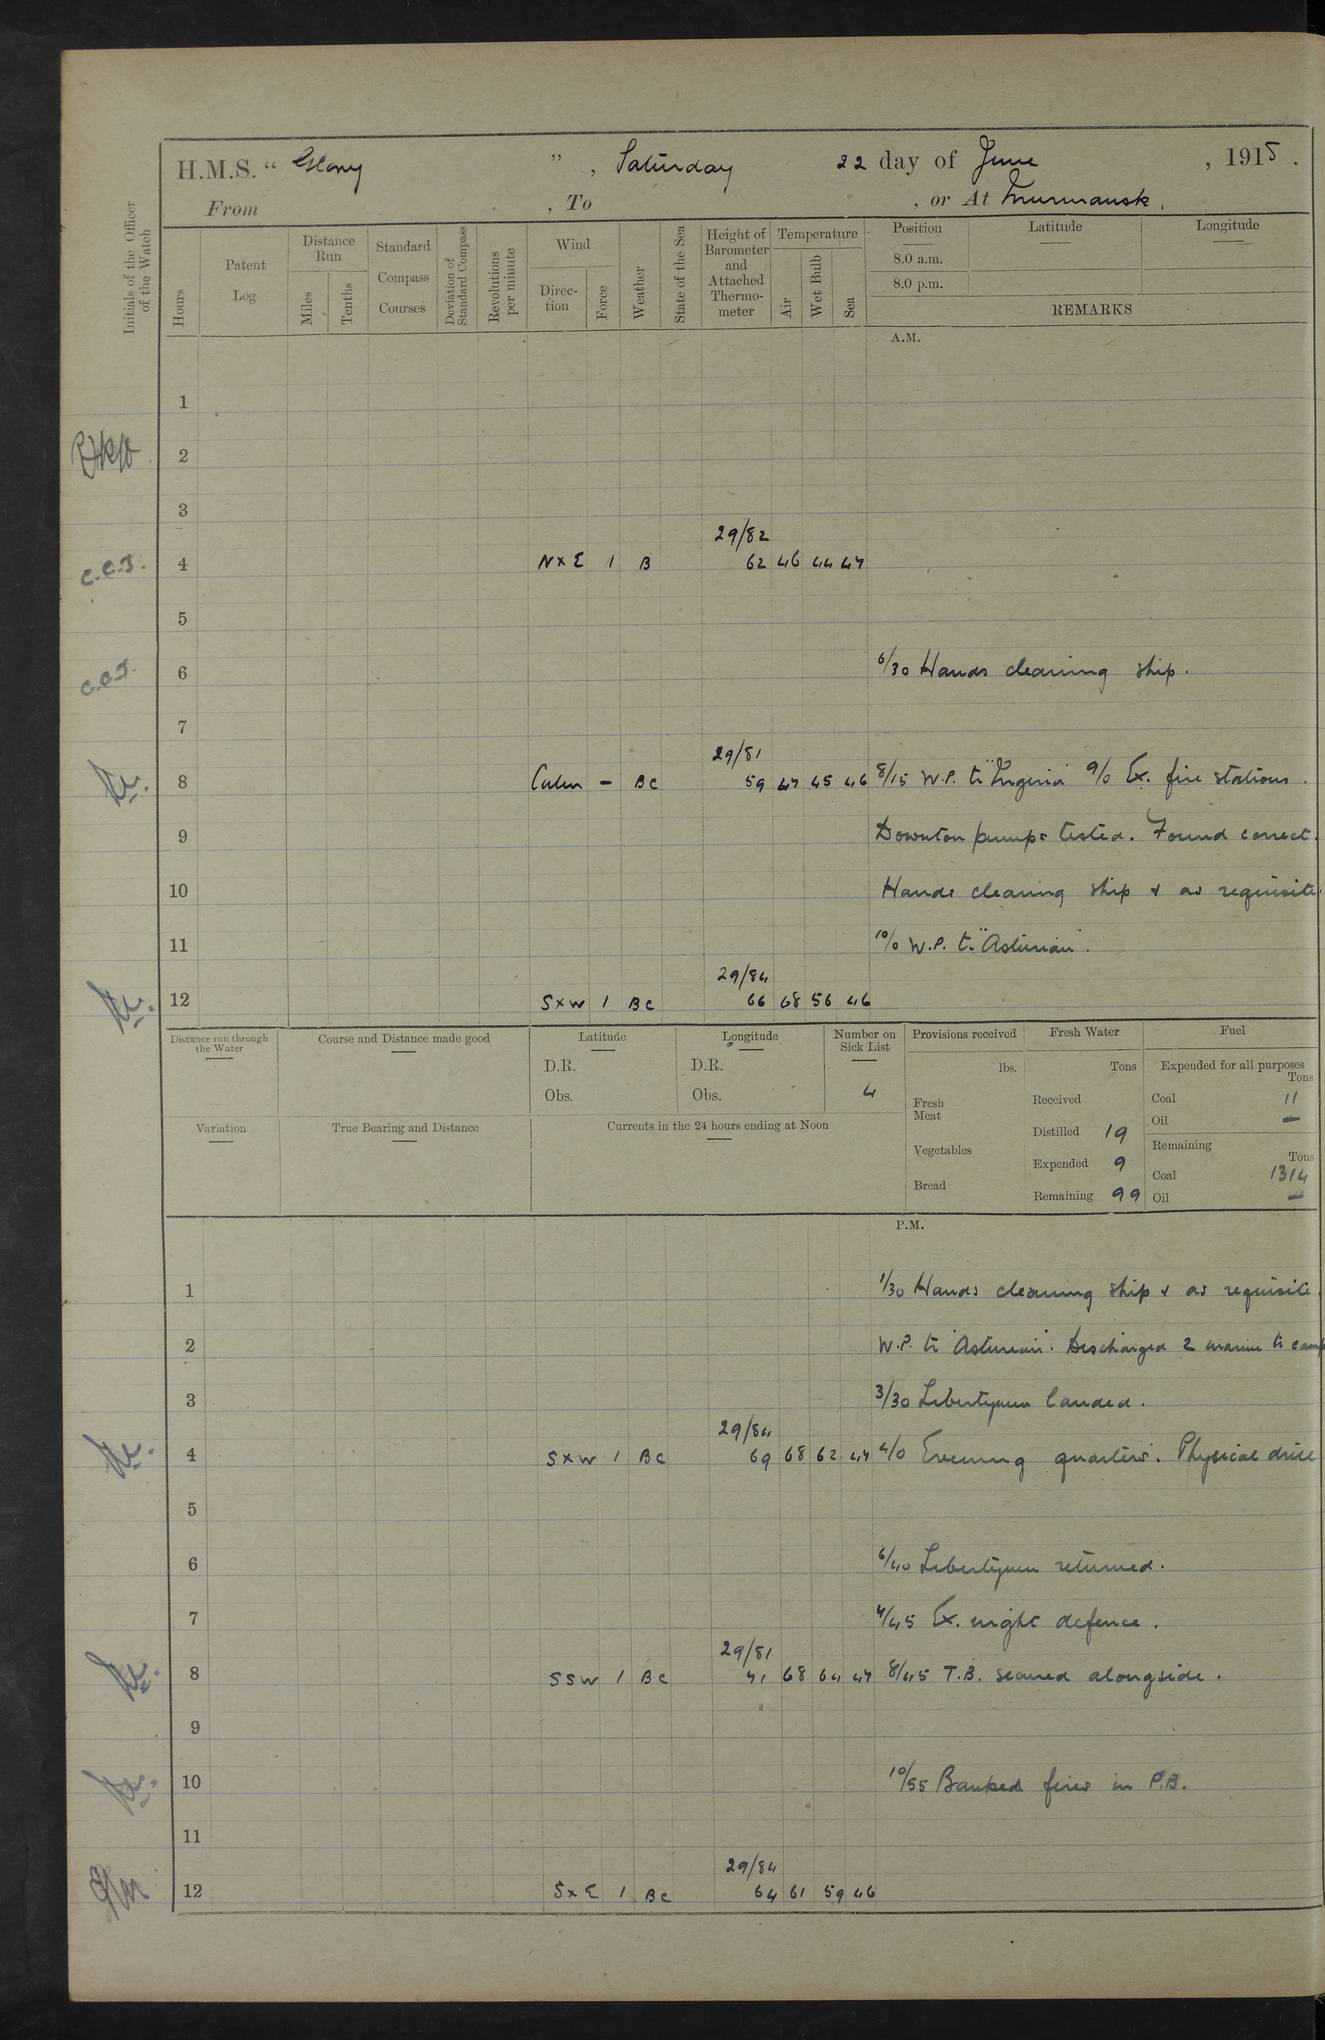 H.M.S. " Glory ", Saturday 22 day of June, 1918.
From , To , or At Murmansk.
Initials of the Officer of the Watch
Hours
Patent Log
Distance Run
Miles
Tenths
Standard Compass Courses
Deviation of Standard Compass
Revolutions per minute
Wind
Direction
Force
Weather
State of the Sea
Height of Barometer and Attached Thermometer
Temperature
Air
Wet Bulb
Sea
Position
8.0 a.m.
8.0 p.m.
Latitude
Longitude
REMARKS
A.M.
1
2
3
29/82
C.C.J. 4 N x E 1 B 62 46 44 47
5
C.C.J. 6 6/30 Hands cleaning ship.
7
29/81
8 Calm – BC 59 47 45 46 8/15 W.P. to 9/0 Ex. fire stations.
9 Downton pumps tested. Found correct.
10 Hands cleaning ship & as requisite
11 10/0 W.P. to "Asturian".
29/84
12 S x W 1 BC 66 68 56 46
Distance run through the Water
Course and Distance made good
Latitude
D.R.
Obs.
Longitude
D.R.
Obs.
Number on Sick List
4
Provisions received
lbs.
Fresh Meat
Vegetables
Bread
Fresh Water
Tons
Received
Distilled 19
Expended 9
Remaining 99
Fuel
Expended for all purposes
Tons
Coal 11
Oil –
Remaining
Tons
Coal 1314
Oil –
Variation
True Bearing and Distance
Currents in the 24 hours ending at Noon
P.M.
1 1/30 Hands cleaning ship & as requisite.
2 W.P. to "Asturian". Discharged 2 marine to camp
3 3/30 Libertymen landed.
29/84
4 S x W 1 BC 69 68 62 47 4/0 Evening quarters. Physical drill
5
6 6/40 Libertymen returned.
7 7/45 Ex. night defence.
29/81
8 SSW 1 BC 71 68 64 47 8/45 T.B. secured alongside.
9
10 10/55 Banked fires in P.B.
11
29/84
12 S x E 1 BC 64 61 59 46